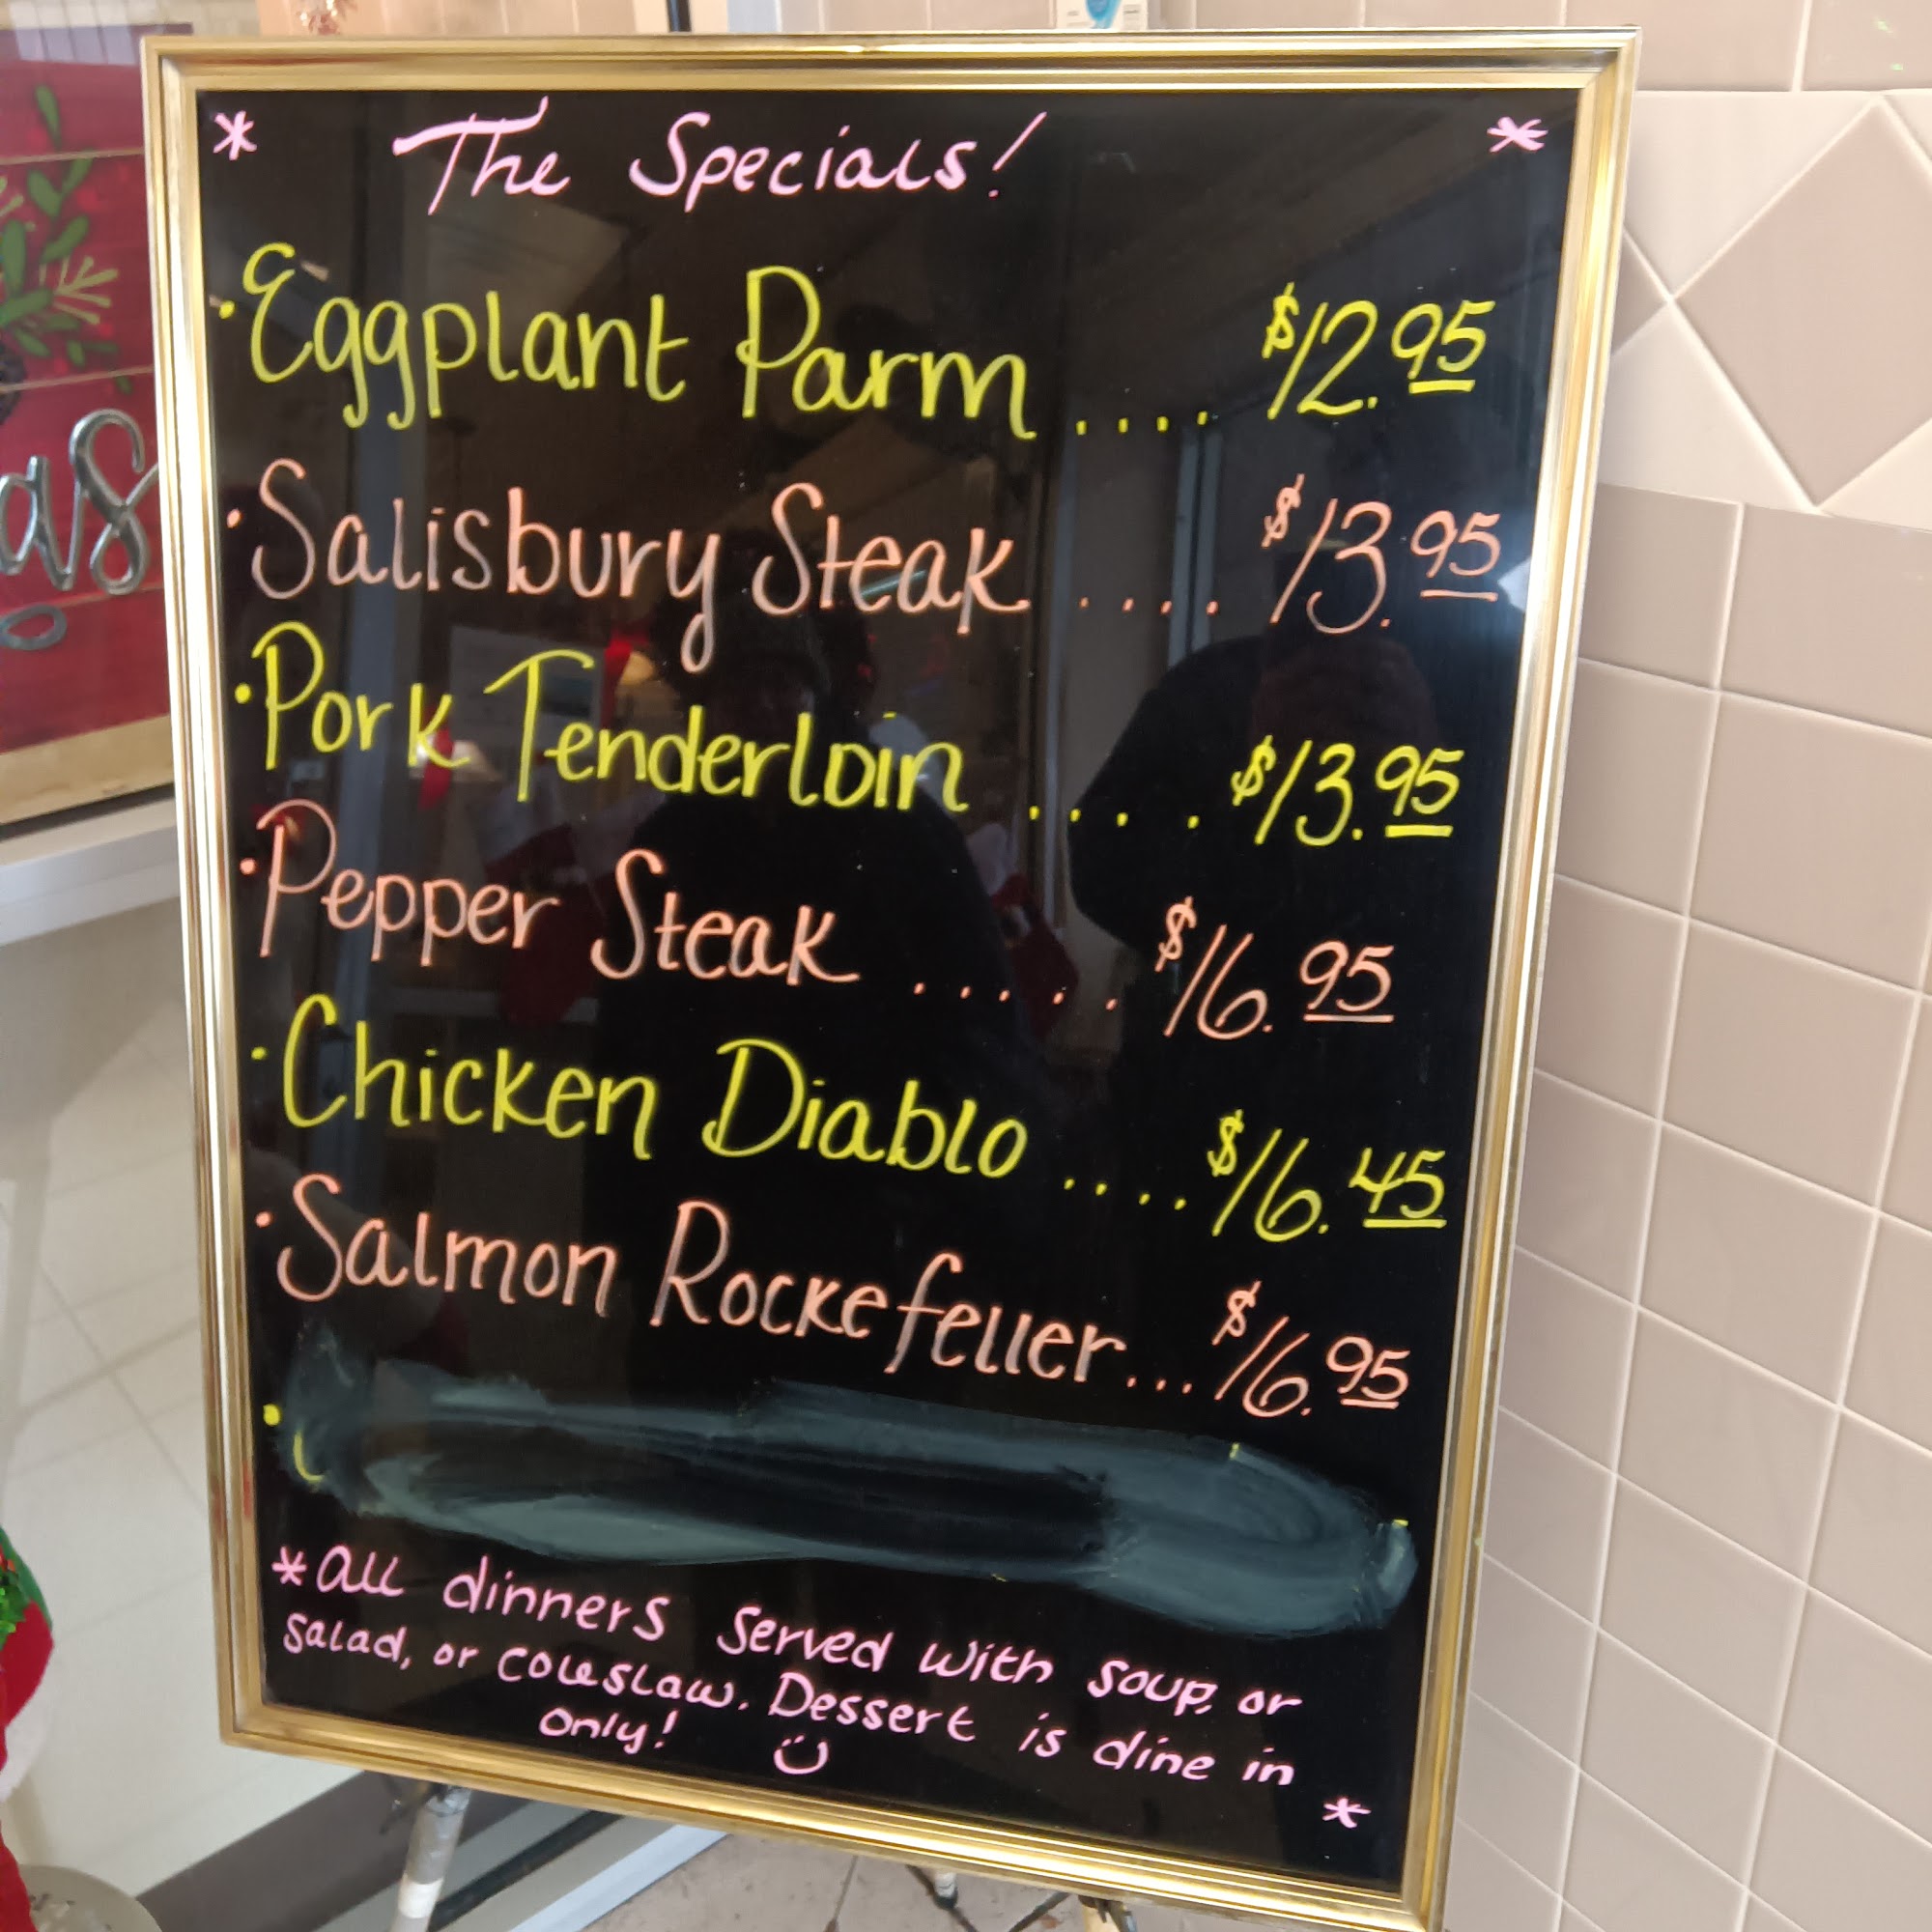 * The Specials! *
· Eggplant Parm .... $12.95
· Salisbury Steak .... $13.95
· Pork Tenderloin .... $13.95
· Pepper Steak ..... $16.95
· Chicken Diablo .... $16.45
· Salmon Rockefeller... $16.95
*All dinners served with soup, or
salad, or coleslaw. Dessert is dine in
only! *
as